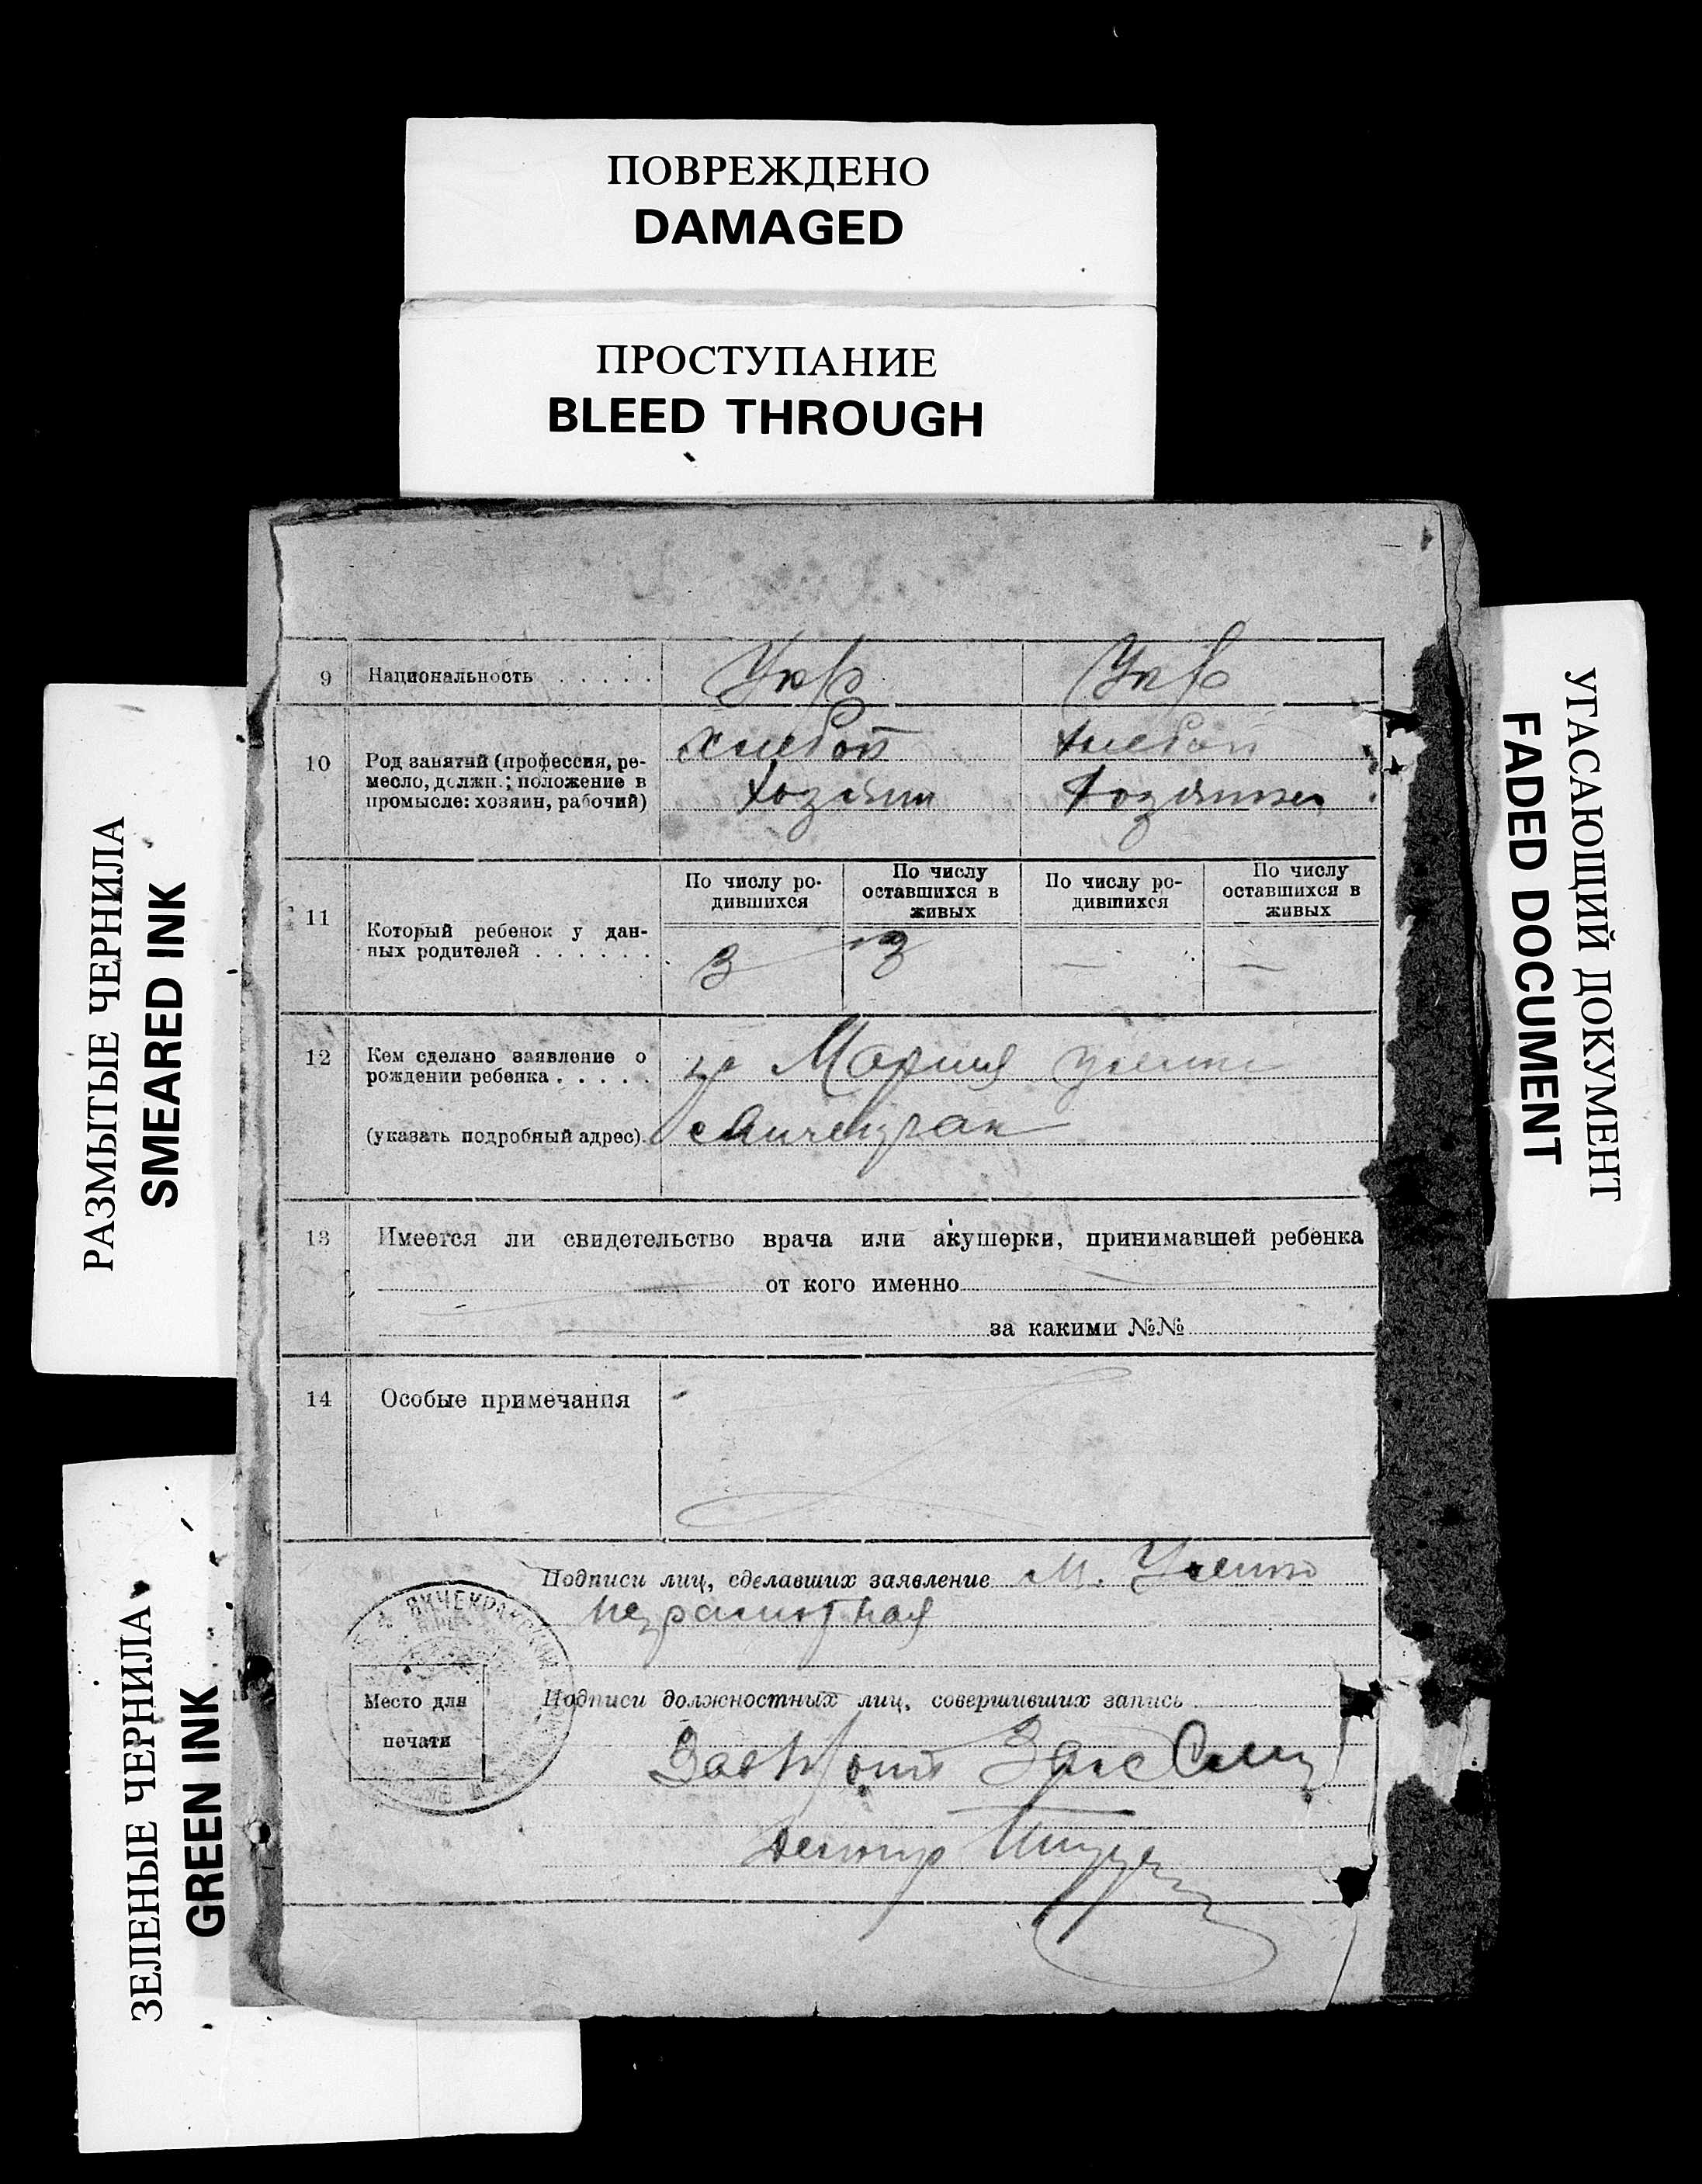 ПОВРЕЖДЕНО
DAMAGED
ПРОСТУПАНИЕ
BLEED THROUGH
РАЗМЫТЫЕ ЧЕРНИЛА
SMEARED INK
ЗЕЛЕНЫЕ ЧЕРНИЛА
GREEN INK
УГАСАЮЩИЙ ДОКУМЕНТ
FADED DOCUMENT
9 Национальность . . . . . Укр Укр
10 Род занятий (профессия, ре-
месло, должн.; положение в
промысле: хозяин, рабочий)
хлебоп хлебоп
хозяин хозяйка
11 Который ребенок у дан-
ных родителей . . . . . .
По числу ро-
дившихся
По числу
оставшихся в
живых
По числу ро-
дившихся
По числу
оставшихся в
живых
3 3 — —
12 Кем сделано заявление о
рождении ребенка . . . . .
гр Мария
(указать подробный адрес).
13 Имеется ли свидетельство врача или акушерки, принимавшей ребенка
от кого именно
за какими №№
14 Особые примечания
Подписи лиц, сделавших заявление М.
неграмотная
Место для
печати
Подписи должностных лиц, совершивших запись
Загс